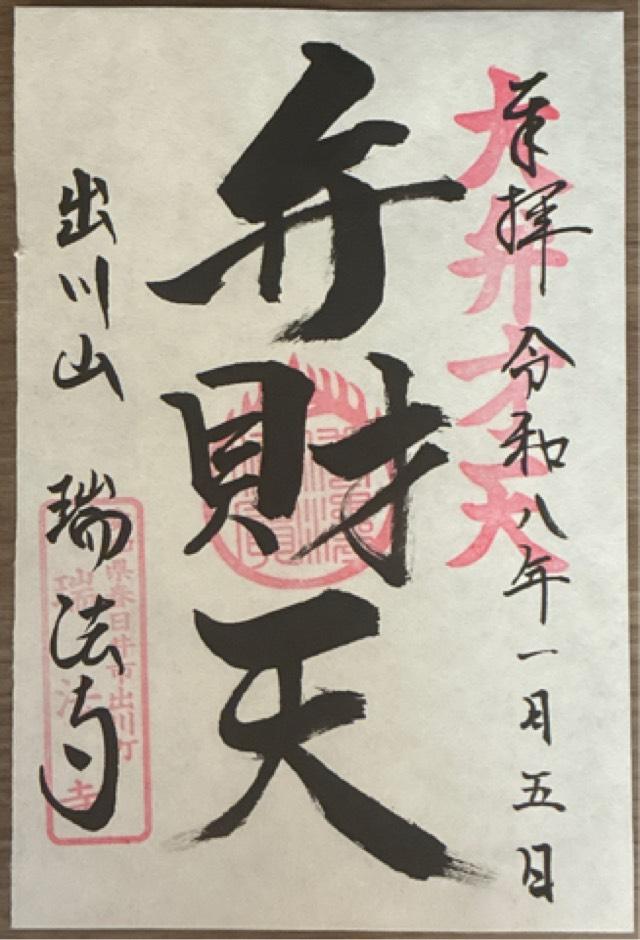 奉拝 令和八年一月五日
大弁才天
弁財天
出川山 瑞法寺
愛知県春日井市出川町
瑞法寺